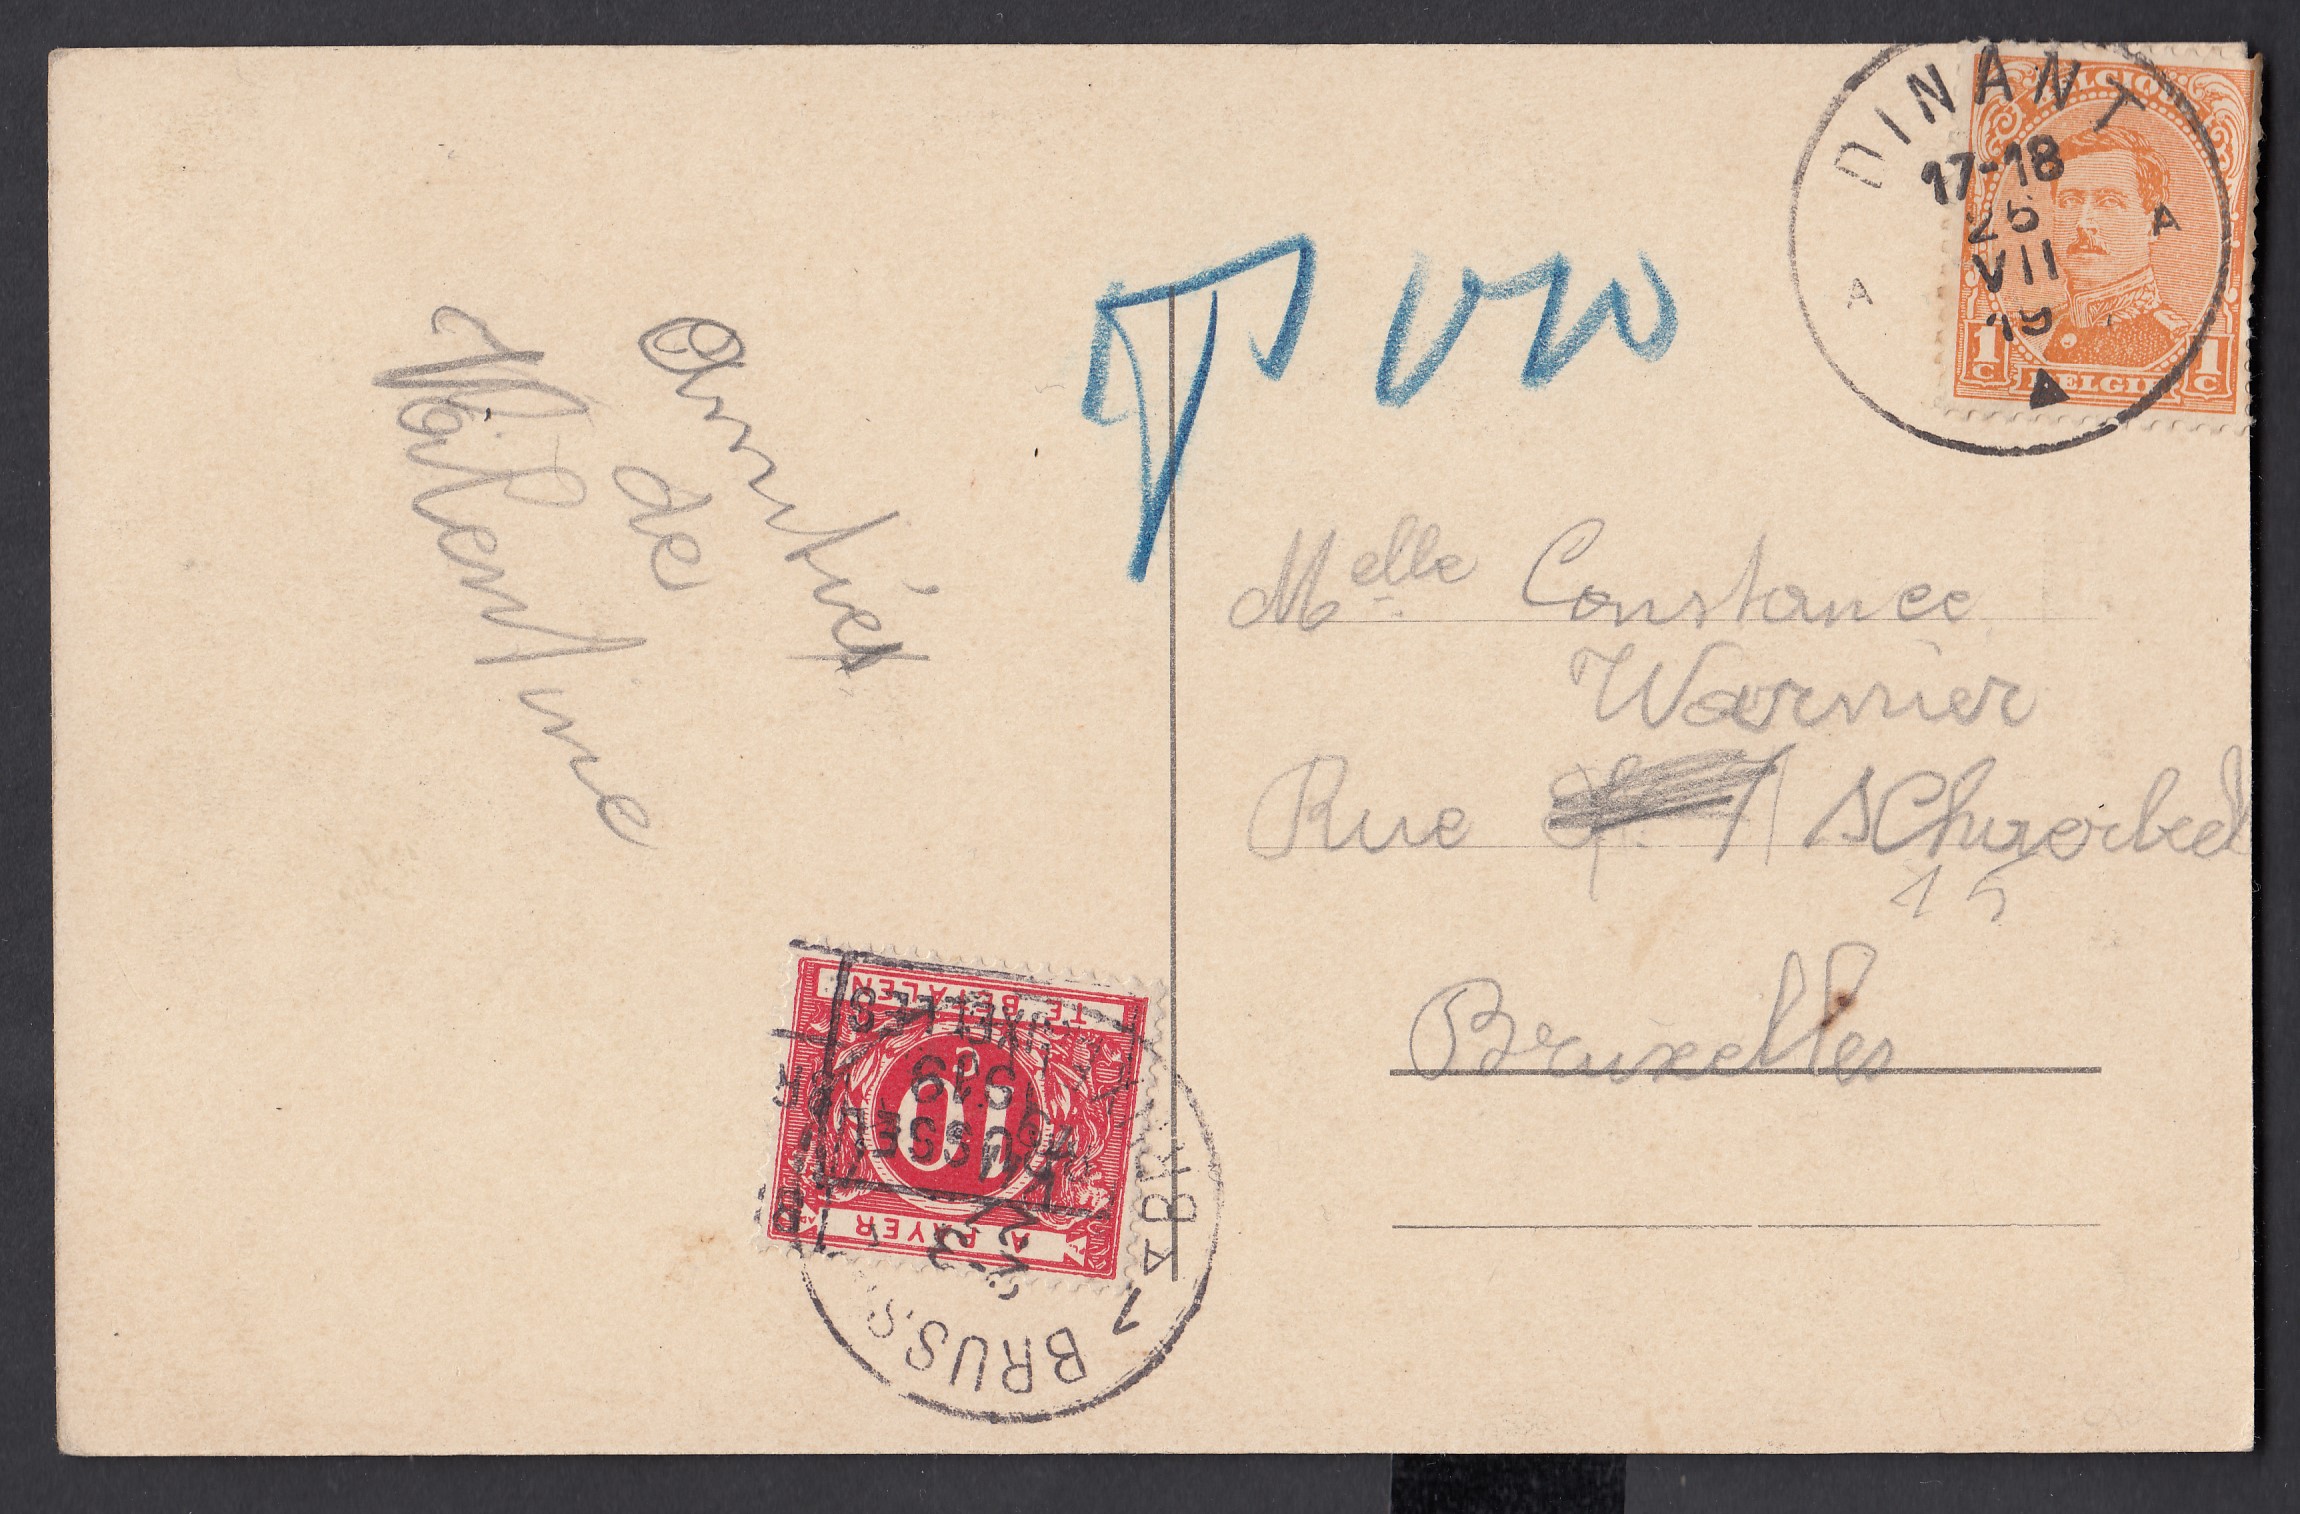 Amitiés
de
Valentine
T 0,10
DINANT
17-18
25
VII
19
A A
BELGIQUE
1 C 1 C
BELGIË
Melle Constance
Warnier
Rue Schaerbeek
15
Bruxelles
TE BETALEN
10
C
A PAYER
1919
BRUSSEL
1 BRUSS